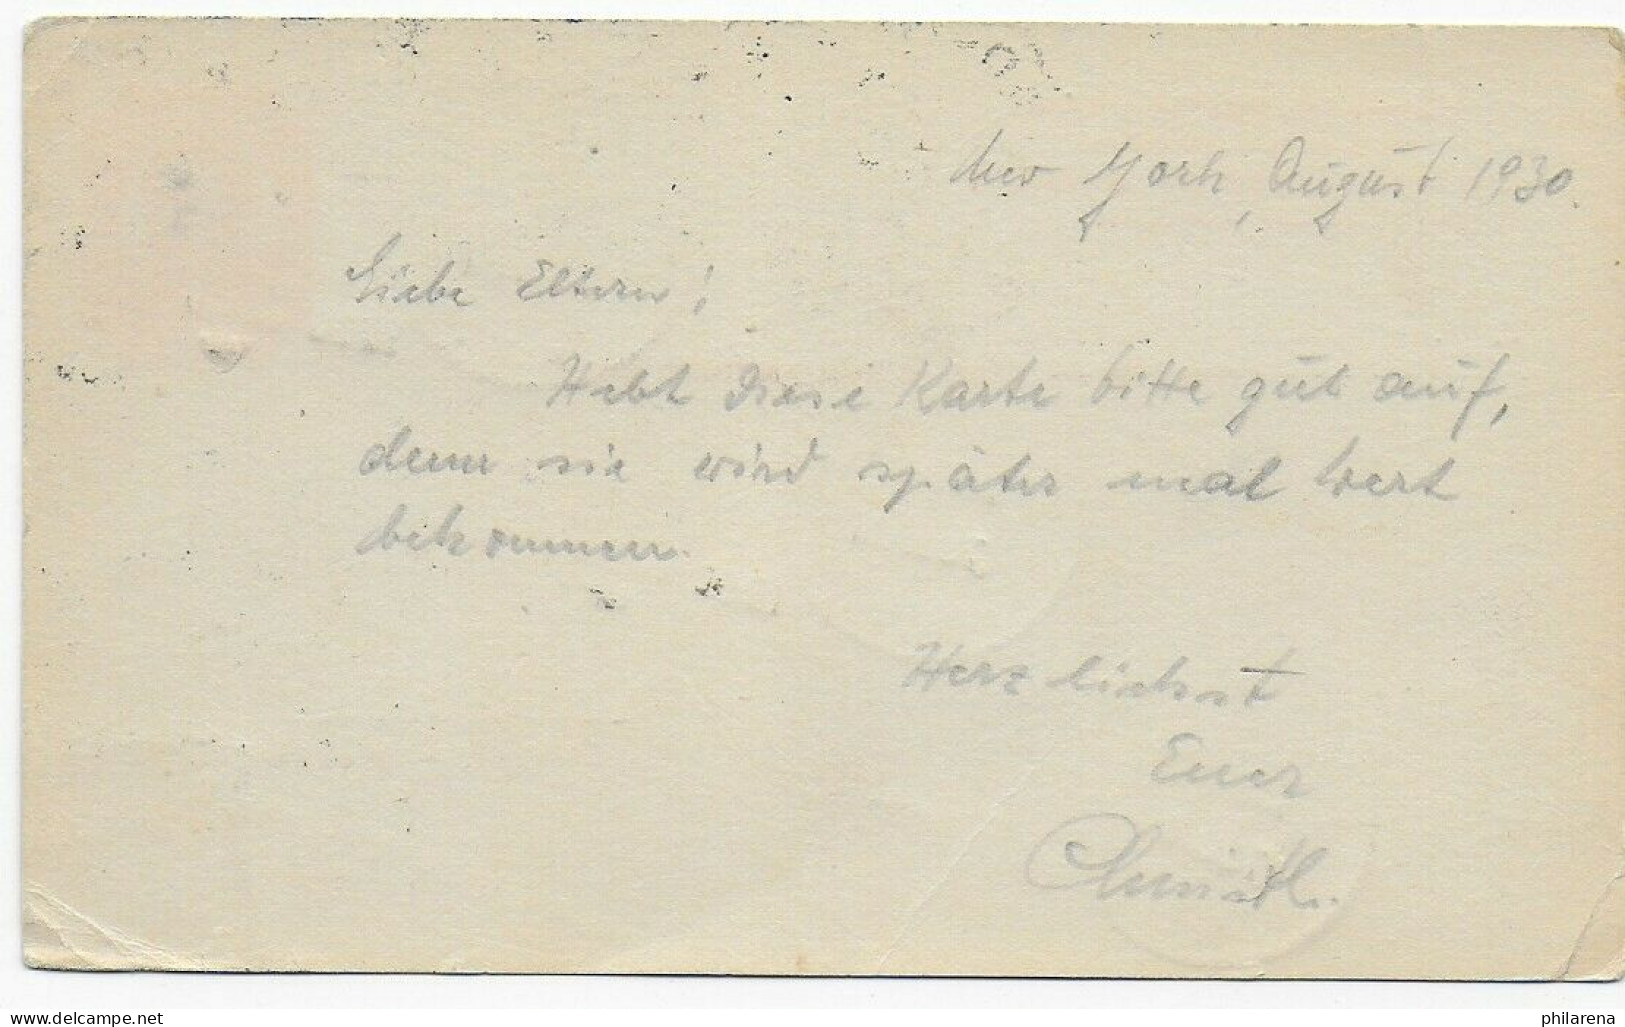 New York, August 1930.
Liebe Eltern!
Hebt diese Karte bitte gut auf,
denn sie wird später mal Wert
bekommen.
Herzlichst
Euer
www.delcampe.net
philarena